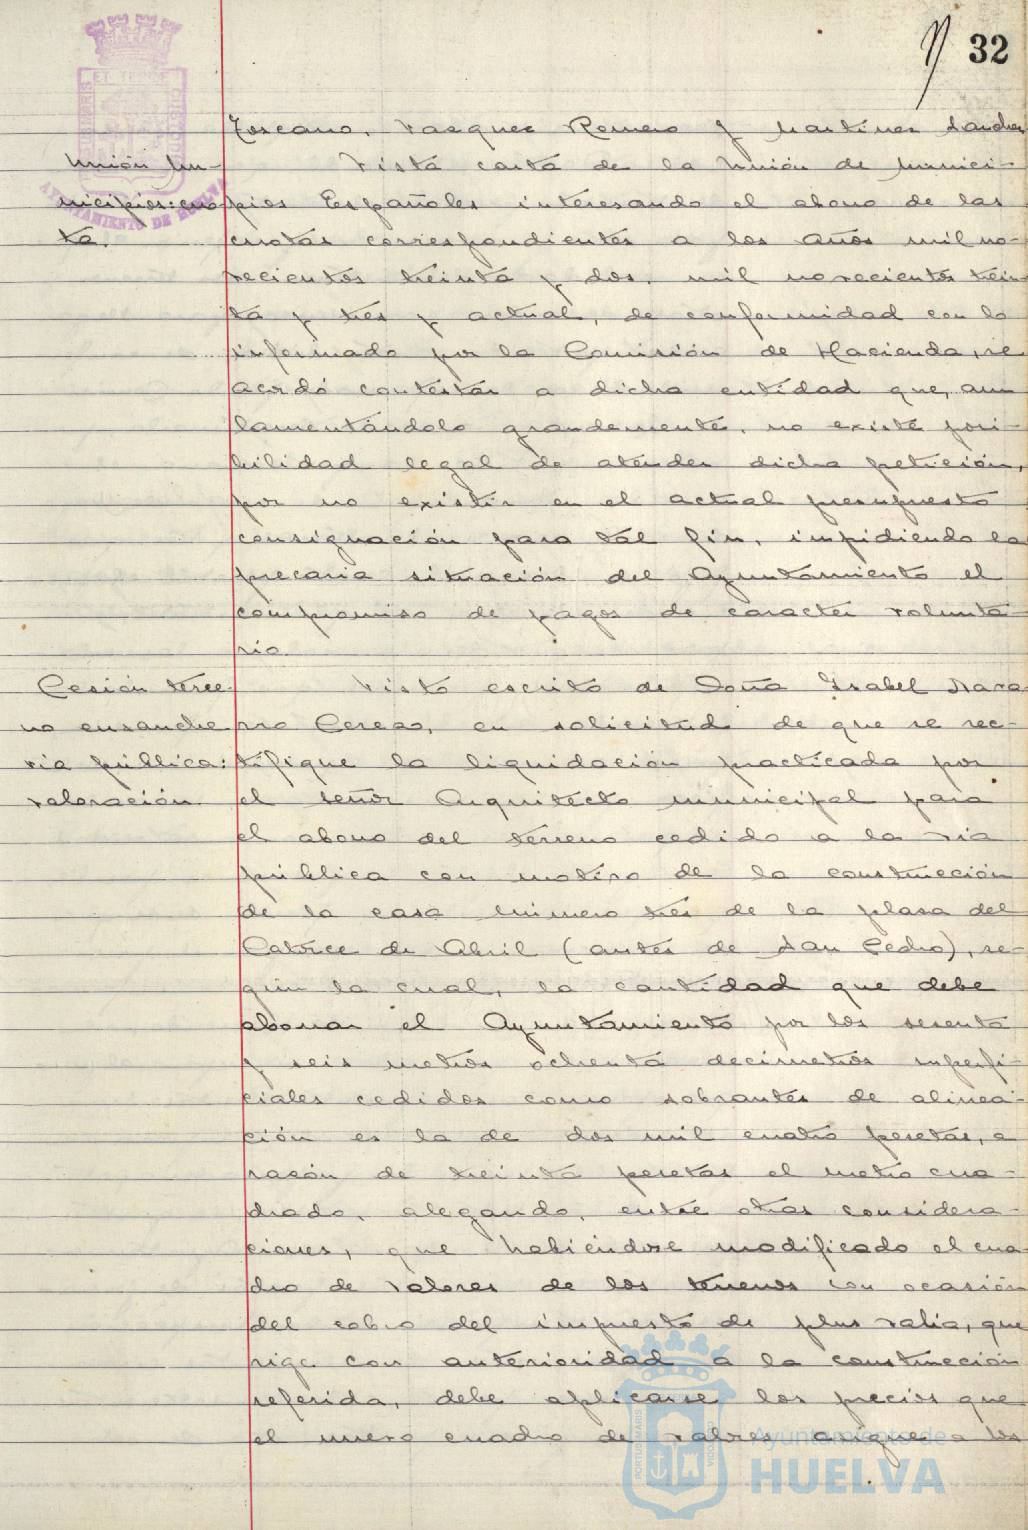 32
Toscano, Vazquez Romero y Martinez Sanchez
Unión Mu-
nicipios: cuo-
ta.
Vista carta de la Unión de Munici-
pios Españoles interesando el abono de las
cuotas correspondientes a los años mil no-
vecientos treinta y dos, mil novecientos trein
ta y tres y actual, de conformidad con lo
informado por la Comisión de Hacienda, se
acordó contestar a dicha entidad que, aun
lamentándolo grandemente, no existe posi
bilidad legal de atender dicha petición,
por no existir en el actual presupuesto
consignación para tal fin, impidiendo la
precaria situación del Ayuntamiento el
compromiso de pagos de caracter volunta
rio.
Cesión terre
no ensanche
via pública:
valoración.
Visto escrito de Doña Isabel Nava
rro Cerezo, en solicitud de que se rec-
tifique la liquidación practicada por
el señor Arquitecto municipal para
el abono del terreno cedido a la via
pública con motivo de la construcción
de la casa número tres de la plaza del
Catorce de Abril (antes de San Pedro), se-
gún la cual, la cantidad que debe
abonar el Ayuntamiento por los sesenta
y seis metros ochenta decimetros superfi-
ciales cedidos como sobrantes de alinea-
ción es la de dos mil cuatro pesetas, a
razón de treinta pesetas el metro cua-
drado, alegando, entre otras considera-
ciones, que habiéndose modificado el cua
dro de valores de los terrenos con ocasión
del cobro del impuesto de plus valia, que
rige con anterioridad a la construcción
referida, debe aplicarse los precios que
el nuevo cuadro de valores asigne a los
AYUNTAMIENTO DE HUELVA
Ayuntamiento de
HUELVA